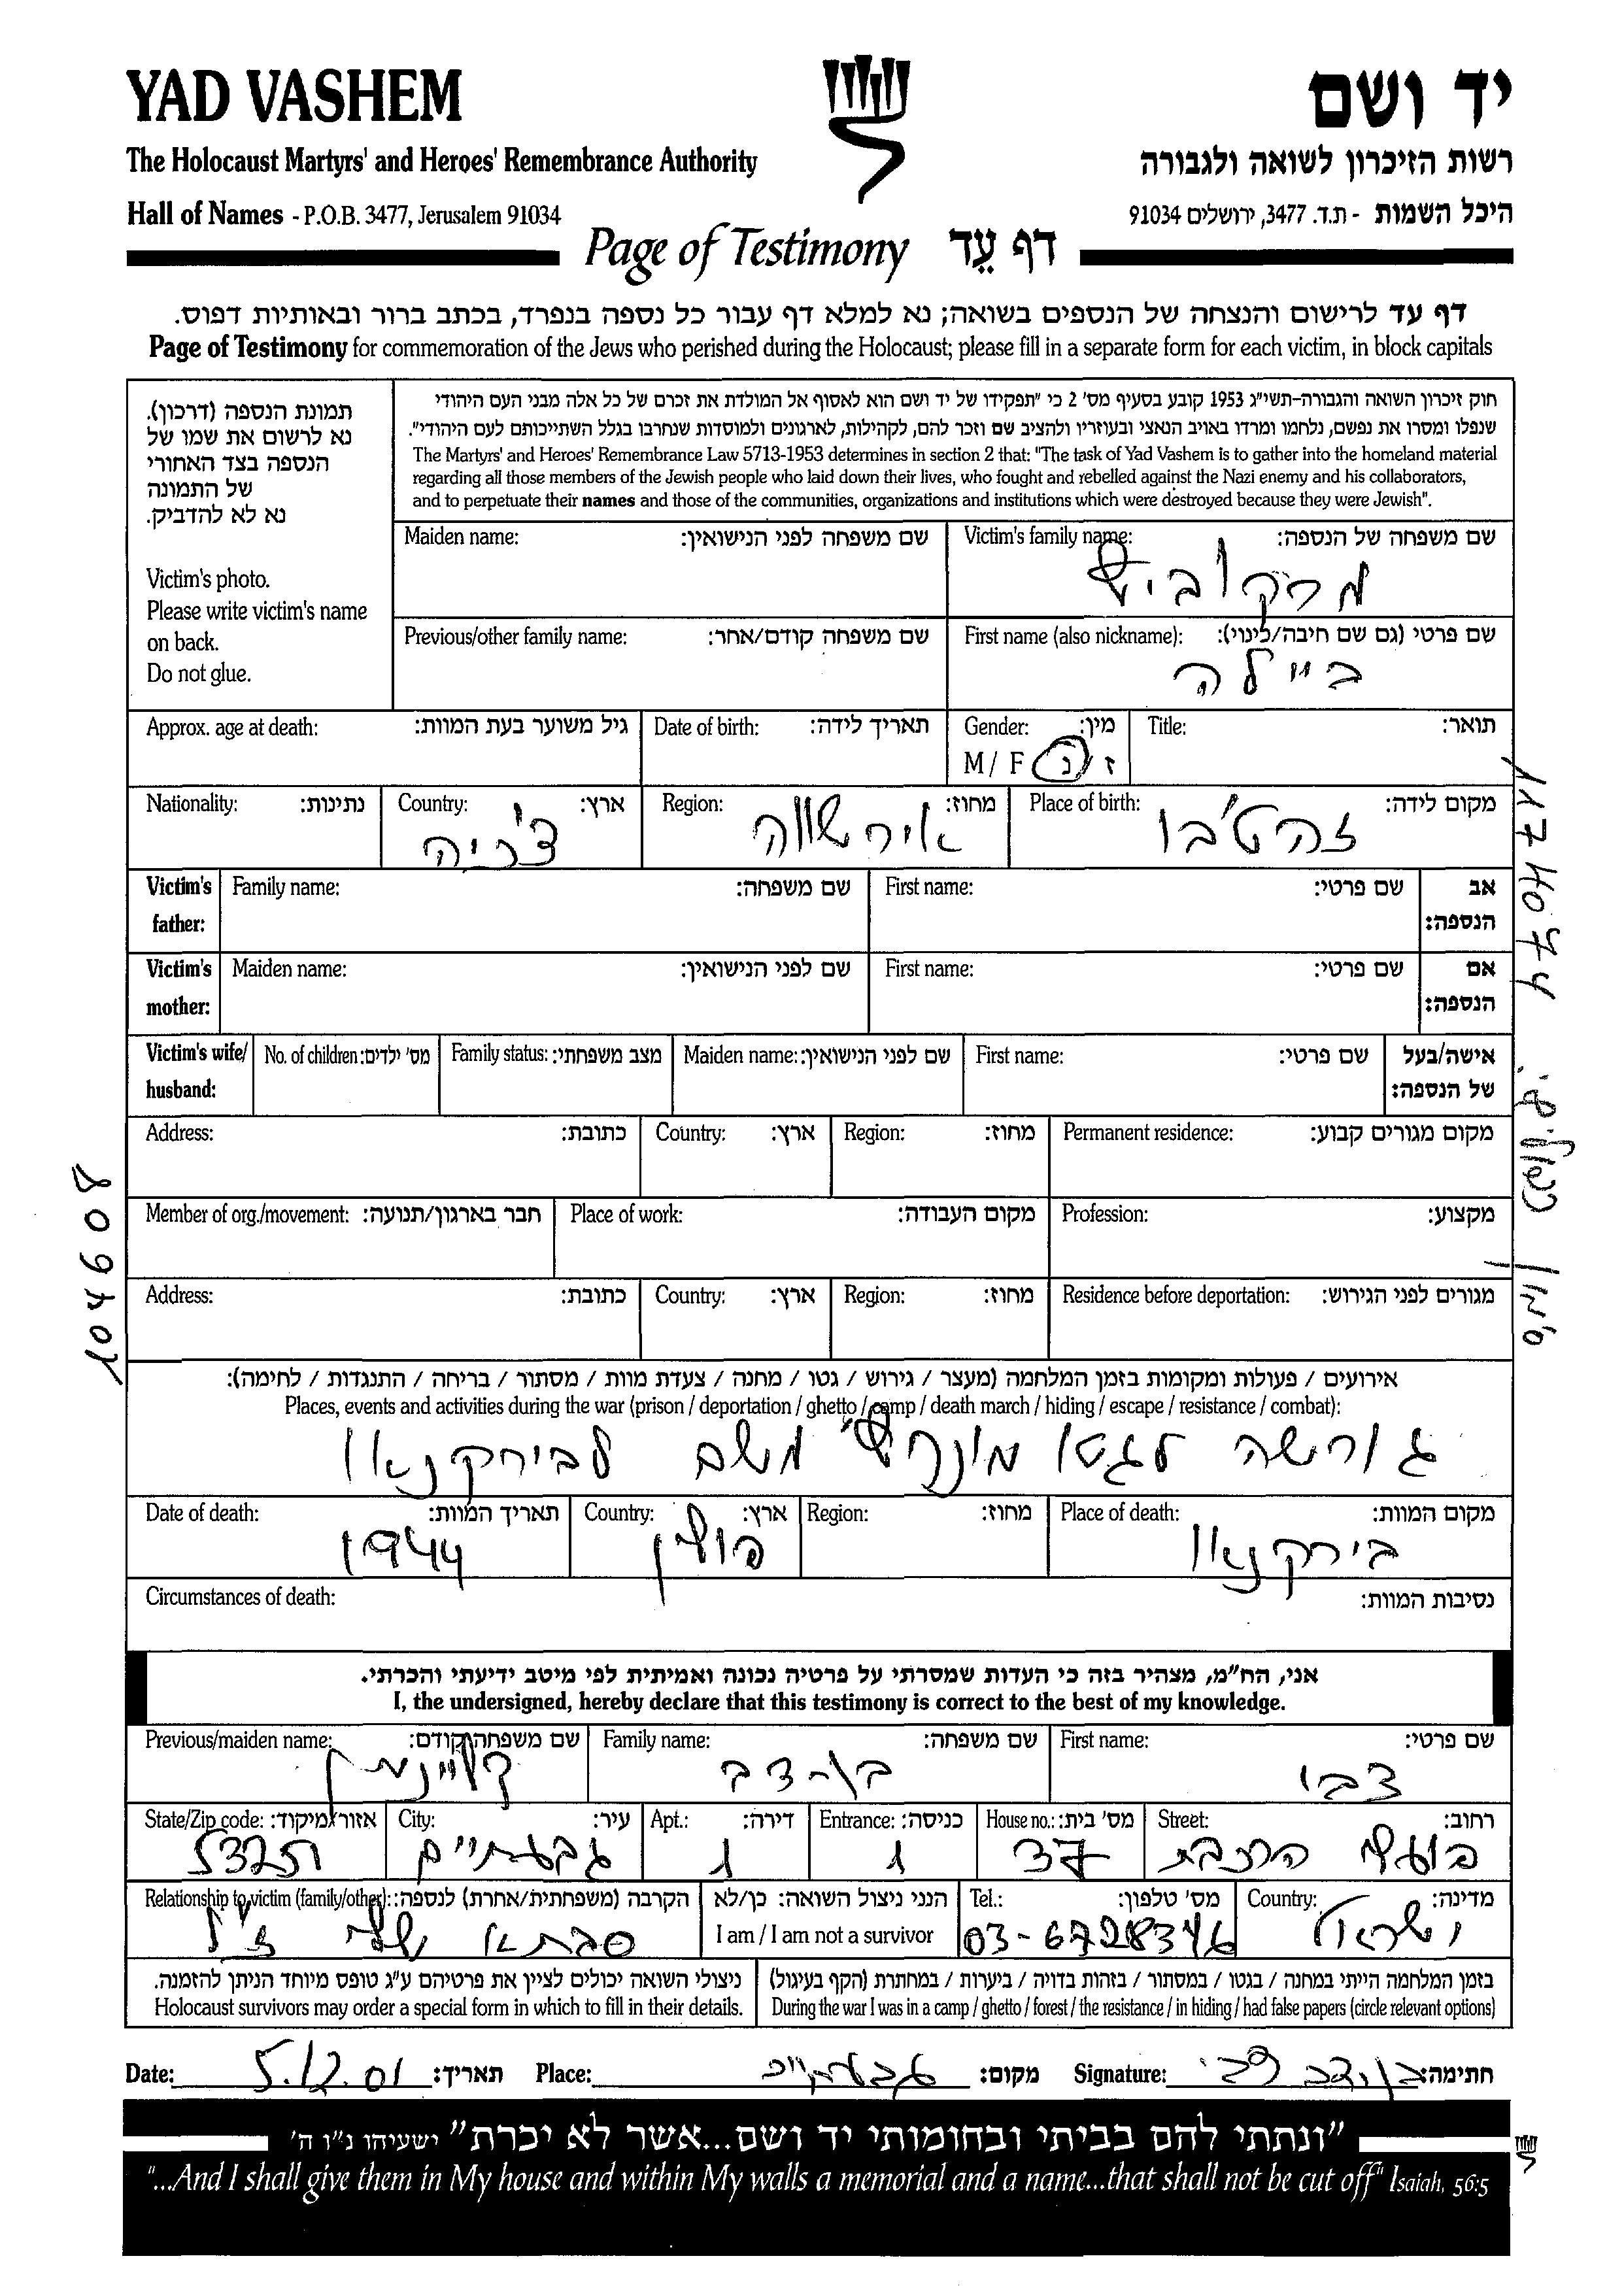 YAD VASHEM
יד ושם
The Holocaust Martyrs' and Heroes' Remembrance Authority
רשות הזיכרון לשואה ולגבורה
Hall of Names - P.O.B. 3477, Jerusalem 91034
היכל השמות - ת.ד. 3477, ירושלים 91034
Page of Testimony דף עֵד
דף עד לרישום והנצחה של הנספים בשואה; נא למלא דף עבור כל נספה בנפרד, בכתב ברור ובאותיות דפוס.
Page of Testimony for commemoration of the Jews who perished during the Holocaust; please fill in a separate form for each victim, in block capitals
חוק זיכרון השואה והגבורה-תשי"ג 1953 קובע בסעיף מס' 2 כי "תפקידו של יד ושם הוא לאסוף אל המולדת את זכרם של כל אלה מבני העם היהודי
שנפלו ומסרו את נפשם, נלחמו ומרדו באויב הנאצי ובעוזריו ולהציב שם וזכר להם, לקהילות, לארגונים ולמוסדות שנחרבו בגלל השתייכותם לעם היהודי".
The Martyrs' and Heroes' Remembrance Law 5713-1953 determines in section 2 that: "The task of Yad Vashem is to gather into the homeland material
regarding all those members of the Jewish people who laid down their lives, who fought and rebelled against the Nazi enemy and his collaborators,
and to perpetuate their names and those of the communities, organizations and institutions which were destroyed because they were Jewish".
תמונת הנספה (דרכון).
נא לרשום את שמו של
הנספה בצד האחורי
של התמונה
נא לא להדביק.
Victim's photo.
Please write victim's name
on back.
Do not glue.
Victim's family name: שם משפחה של הנספה:
מרקוביץ
Maiden name: שם משפחה לפני הנישואין:
First name (also nickname): שם פרטי (גם שם חיבה/כינוי):
ביילה
Previous/other family name: שם משפחה קודם/אחר:
Title: תואר:
Gender: מין:
M / F ז / נ
Date of birth: תאריך לידה:
Approx. age at death: גיל משוער בעת המוות:
Place of birth: מקום לידה:
זהט'בו
Region: מחוז:
אירשווה
Country: ארץ:
צ'כיה
Nationality: נתינות:
Victim's father: אב הנספה:
First name: שם פרטי:
Family name: שם משפחה:
Victim's mother: אם הנספה:
First name: שם פרטי:
Maiden name: שם לפני הנישואין:
Victim's wife/husband: אישה/בעל של הנספה:
First name: שם פרטי:
Maiden name: שם לפני הנישואין:
Family status: מצב משפחתי:
No. of children: מס' ילדים:
Permanent residence: מקום מגורים קבוע:
Region: מחוז:
Country: ארץ:
Address: כתובת:
Profession: מקצוע:
Place of work: מקום העבודה:
Member of org./movement: חבר בארגון/תנועה:
Residence before deportation: מגורים לפני הגירוש:
Region: מחוז:
Country: ארץ:
Address: כתובת:
אירועים / פעולות ומקומות בזמן המלחמה (מעצר / גירוש / גטו / מחנה / צעדת מוות / מסתור / בריחה / התנגדות / לחימה):
Places, events and activities during the war (prison / deportation / ghetto / camp / death march / hiding / escape / resistance / combat):
גורשה לגטו מונקץ' משם לבירקנאו
Place of death: מקום המוות:
בירקנאו
Region: מחוז:
Country: ארץ:
פולין
Date of death: תאריך המוות:
1944
Circumstances of death: נסיבות המוות:
אני, הח"מ, מצהיר בזה כי העדות שמסרתי על פרטיה נכונה ואמיתית לפי מיטב ידיעתי והכרתי.
I, the undersigned, hereby declare that this testimony is correct to the best of my knowledge.
First name: שם פרטי:
צבי
Family name: שם משפחה:
בן-דב
Previous/maiden name: שם משפחה קודם:
קליינמן
Street: רחוב:
הרכבת
House no.: מס' בית:
37
Entrance: כניסה:
1
Apt.: דירה:
1
City: עיר:
גבעתיים
State/Zip code: אזור/מיקוד:
Country: מדינה:
ישראל
Tel.: מס' טלפון:
03-6728346
הנני ניצול השואה: כן/לא
I am / I am not a survivor
Relationship to victim (family/other): הקרבה (משפחתית/אחרת) לנספה:
סבתא שלי ז"ל
בזמן המלחמה הייתי במחנה / בגטו / במסתור / בזהות בדויה / ביערות / במחתרת (הקף בעיגול)
During the war I was in a camp / ghetto / forest / the resistance / in hiding / had false papers (circle relevant options)
ניצולי השואה יכולים לציין את פרטיהם ע"ג טופס מיוחד הניתן להזמנה.
Holocaust survivors may order a special form in which to fill in their details.
Date: 5.12.01 תאריך:
Place: גבעתיים מקום:
Signature: בן דב צבי חתימה:
"ונתתי להם בביתי ובחומותי יד ושם...אשר לא יכרת" ישעיהו נ"ו ה'
"...And I shall give them in My house and within My walls a memorial and a name...that shall not be cut off" Isaiah, 56:5
1174074
104908